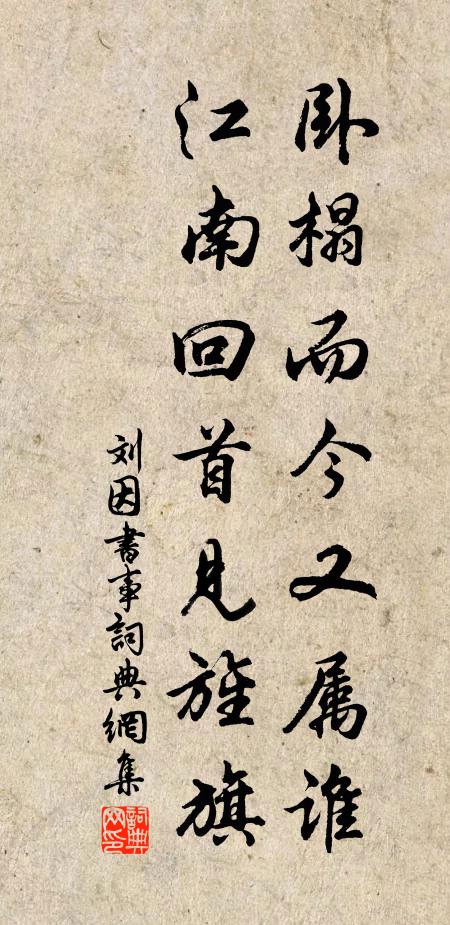 卧榻而今又属谁
江南回首见旌旗
刘因书事詞典網集
詞典网印